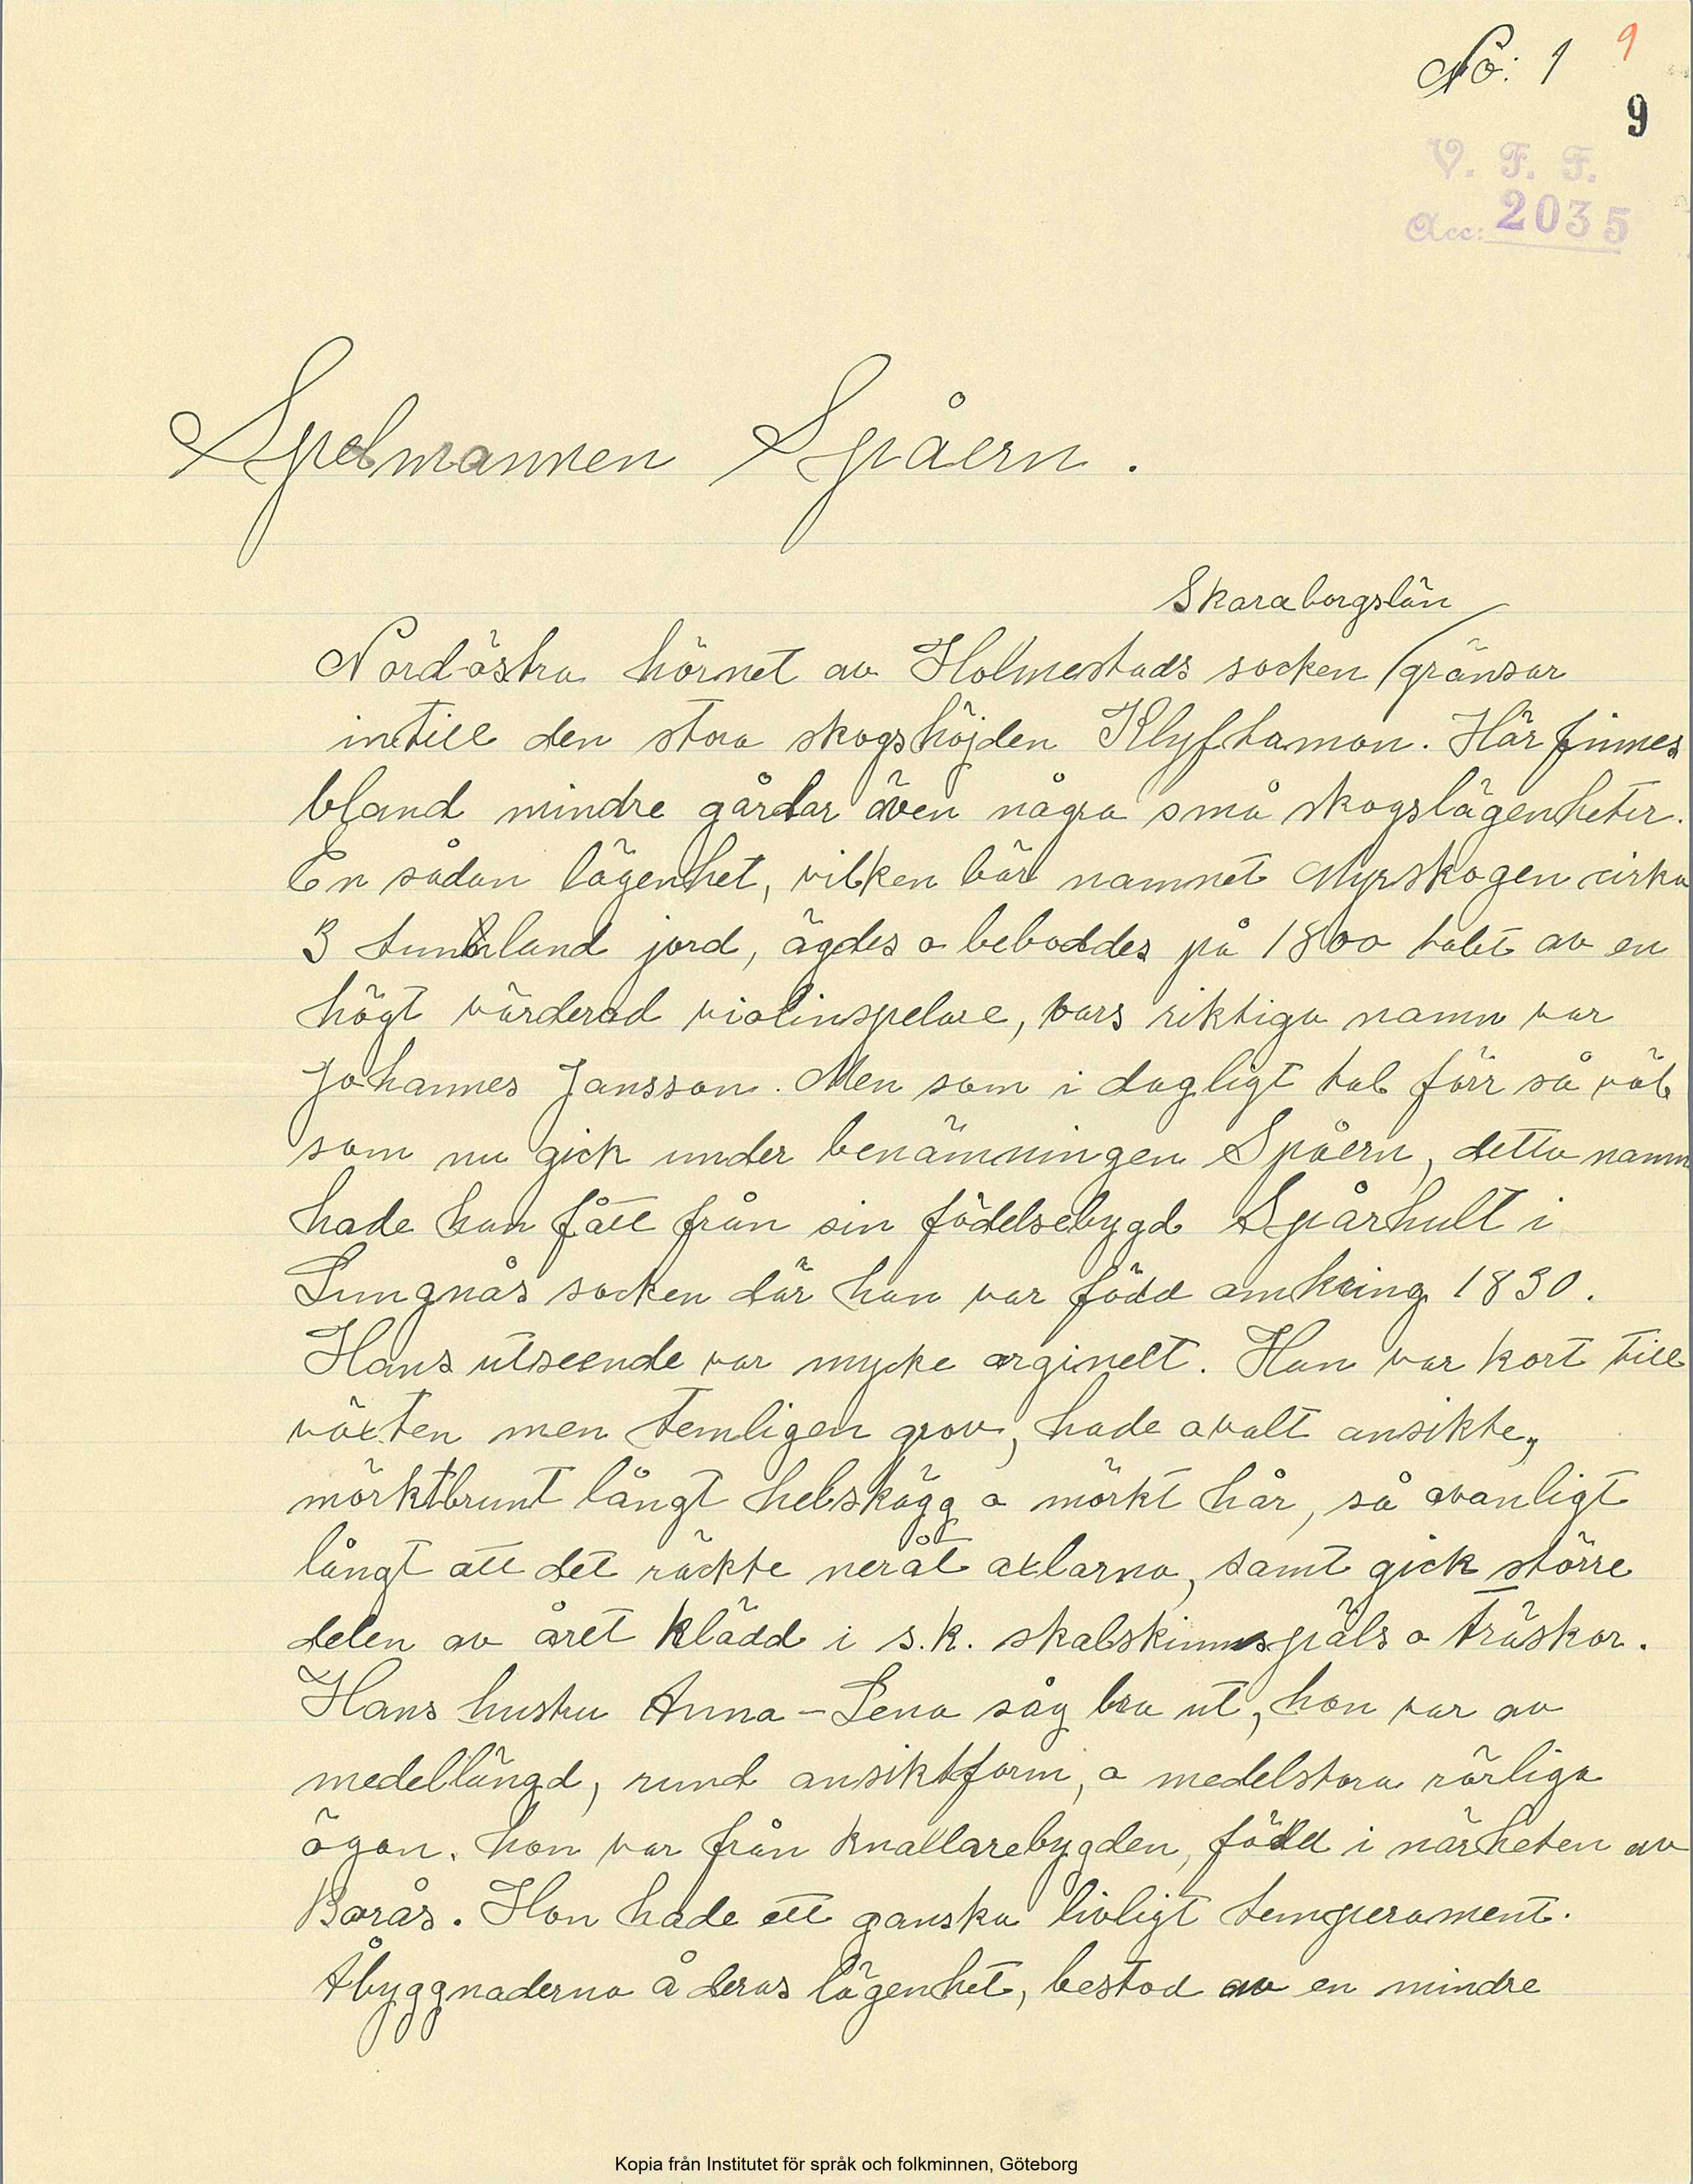 No: 1 9
9
V. F. F.
Acc: 2035
Spelmannen Spåern.
Skaraborgslän
Nordöstra hörnet av Holmestads socken gränsar
intill den stora skogshöjden Klyftamon. Här finnes
bland mindre gårdar även några små skogslägenheter.
En sådan lägenhet, vilken bär namnet Myrskogen cirka
3 tunnland jord, ägdes o beboddes på 1800 talet av en
högt värderad violinspelare, vars riktiga namn var
Johannes Jansson. Men som i dagligt tal förr så väl
som nu gick under benämningen Spåern, detta namn
hade han fått från sin födelsebygd Spårhult i
Lungnås socken där han var född omkring 1830.
Hans utseende var mycke orginelt. Han var kort till
växten men temligen grov, hade ovalt ansikte,
mörktbrunt långt helskägg o mörkt hår, så ovanligt
långt att det räckte neråt axlarna, samt gick större
delen av året klädd i s.k. skalskinnspäls o träskor.
Hans hustru Anna-Lena såg bra ut, hon var av
medellängd, rund ansiktform, o medelstora rörliga
ögon. hon var från knallarebygden, född i närheten av
Borås. Hon hade ett ganska livligt temperament.
Åbyggnaderna å deras lägenhet, bestod av en mindre
Kopia från Institutet för språk och folkminnen, Göteborg